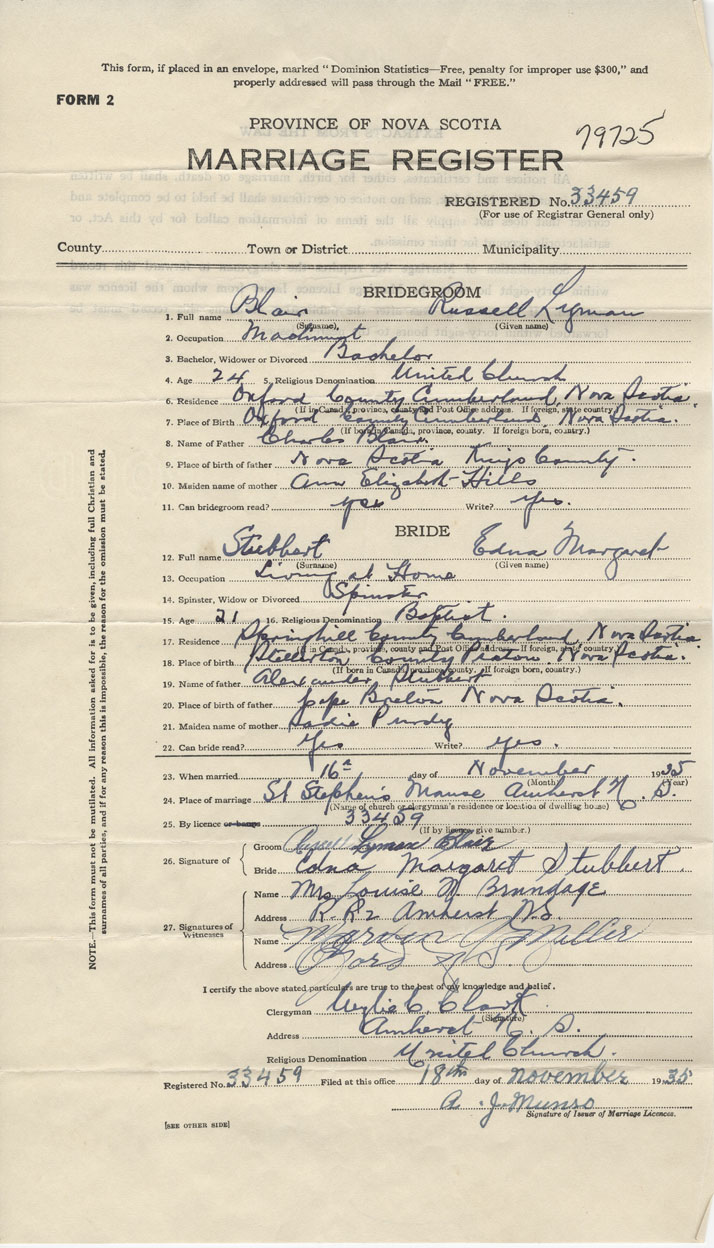 This form, if placed in an envelope, marked "Dominion Statistics—Free, penalty for improper use $300," and
properly addressed will pass through the Mail "FREE."
FORM 2
PROVINCE OF NOVA SCOTIA
79725
MARRIAGE REGISTER
REGISTERED No. 33459
(For use of Registrar General only)
County Town or District Municipality
BRIDEGROOM
1. Full name Blair Russell Lyman
(Surname) (Given name)
2. Occupation Machinist
3. Bachelor, Widower or Divorced Bachelor
4. Age 24 5. Religious Denomination United Church
6. Residence Oxford County Cumberland, Nova Scotia.
(If in Canada, province, county and Post Office address. If foreign, state country)
7. Place of Birth Oxford County Cumberland Nova Scotia.
(If born in Canada, province, county. If foreign born, country.)
8. Name of Father Charles Blair.
9. Place of birth of father Nova Scotia Kings County.
10. Maiden name of mother Ann Elizabeth Hills
11. Can bridegroom read? yes Write? Yes.
BRIDE
12. Full name Stubbert Edna Margaret
(Surname) (Given name)
13. Occupation Living at Home
14. Spinster, Widow or Divorced Spinster
15. Age 21 16. Religious Denomination Baptist.
17. Residence Springhill County Cumberland, Nova Scotia
(If in Canada, province, county and Post Office address. If foreign, state country.)
18. Place of birth Stellarton County Pictou, Nova Scotia.
(If born in Canada, province, county. If foreign born, country.)
19. Name of father Alexander Stubbert
20. Place of birth of father Cape Breton Nova Scotia.
21. Maiden name of mother Sadie Purdy
22. Can bride read? Yes Write? Yes.
23. When married 16th day of November 1935
(Month) (Year)
24. Place of marriage St Stephen's Manse Amherst N. S.
(Name of church or clergyman's residence or location of dwelling house)
25. By licence or banns 33459
(If by licence give number.)
26. Signature of
Groom Russell Lyman Blair
Bride Edna Margaret Stubbert.
27. Signatures of Witnesses
Name Mrs Louise M. Brundage
Address R.R2 Amherst N.S.
Name Miller
Address N.S.
I certify the above stated particulars are true to the best of my knowledge and belief.
Clergyman C. Clark
(Signature)
Address Amherst N. S.
Religious Denomination United Church.
Registered No. 33459 Filed at this office 18th day of November 1935
A. J. Munro
Signature of Issuer of Marriage Licences.
[SEE OTHER SIDE]
NOTE.—This form must not be mutilated. All information asked for is to be given, including full Christian and
surnames of all parties, and if for any reason this is impossible, the reason for the omission must be stated.